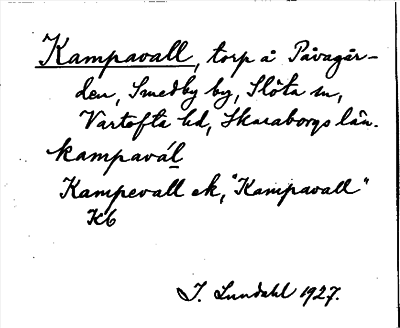 Kampavall, torp å Påvagår-
den, Smedby by, Slöta sn,
Vartofta hd, Skaraborgs län.
kampavál
Kampevall ek, "Kampavall"
K6
I. Lundahl 1927.